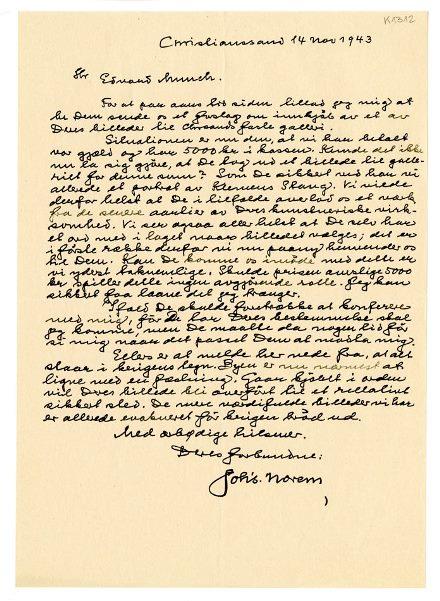 K1312
Christianssand 14 Nov 1943
Hr Edvard Munch.
For at paa aars tid siden tillod jeg mig at
be Dem sende os et forslag om innkjöb av et av
Deres billeder til Chrsands faste galleri.
Situationen er nu den, at vi har betalt
vor gjeld og har 5000 kr i kassen. Kunde det ikke
nu la sig gjöre, at De lag ut et billede til galle-
riet for denne sum? Som De sikkert ved har vi
allerede et portræt av Klemens Stang. Vi vilde
derfor helst at De i tilfælde overlod os et verk
fra de senere aarlier av Deres kunstneriske virk-
somhed. Vi ser ogsaa aller helst at De selv har
et ord med i laget naar billedet vælges; det er
i förste række derfor vi nu paany henvender os
til Dem. Kan De komme os imöde med dette er
vi yderst taknemlige. Skulde prisen overstige 5000
kr spiller dette ingen avgjörende rolle. Jeg kan
sikkert faa laane det jeg trænger.
Ifald De skulde foretrække at konferere
med mig, för De tar Deres bestemmelse skal
jeg komme, men De maatte da nogen tid för
si mig naar det passet Dem at motta mig.
Ellers er at melde her nede fra, at alt
staar i krigens tegn. Byen er nu nærmest at
ligne med en fæstning. Gaar kjöbet i orden
vil Deres billede bli anfört til et relativt
sikkert sted. De mest værdifulde billeder vi har
er allerede evakueret för krigen bröd ud.
Med ærbödige hilsener.
Deres forbundne:
Johs. Norem